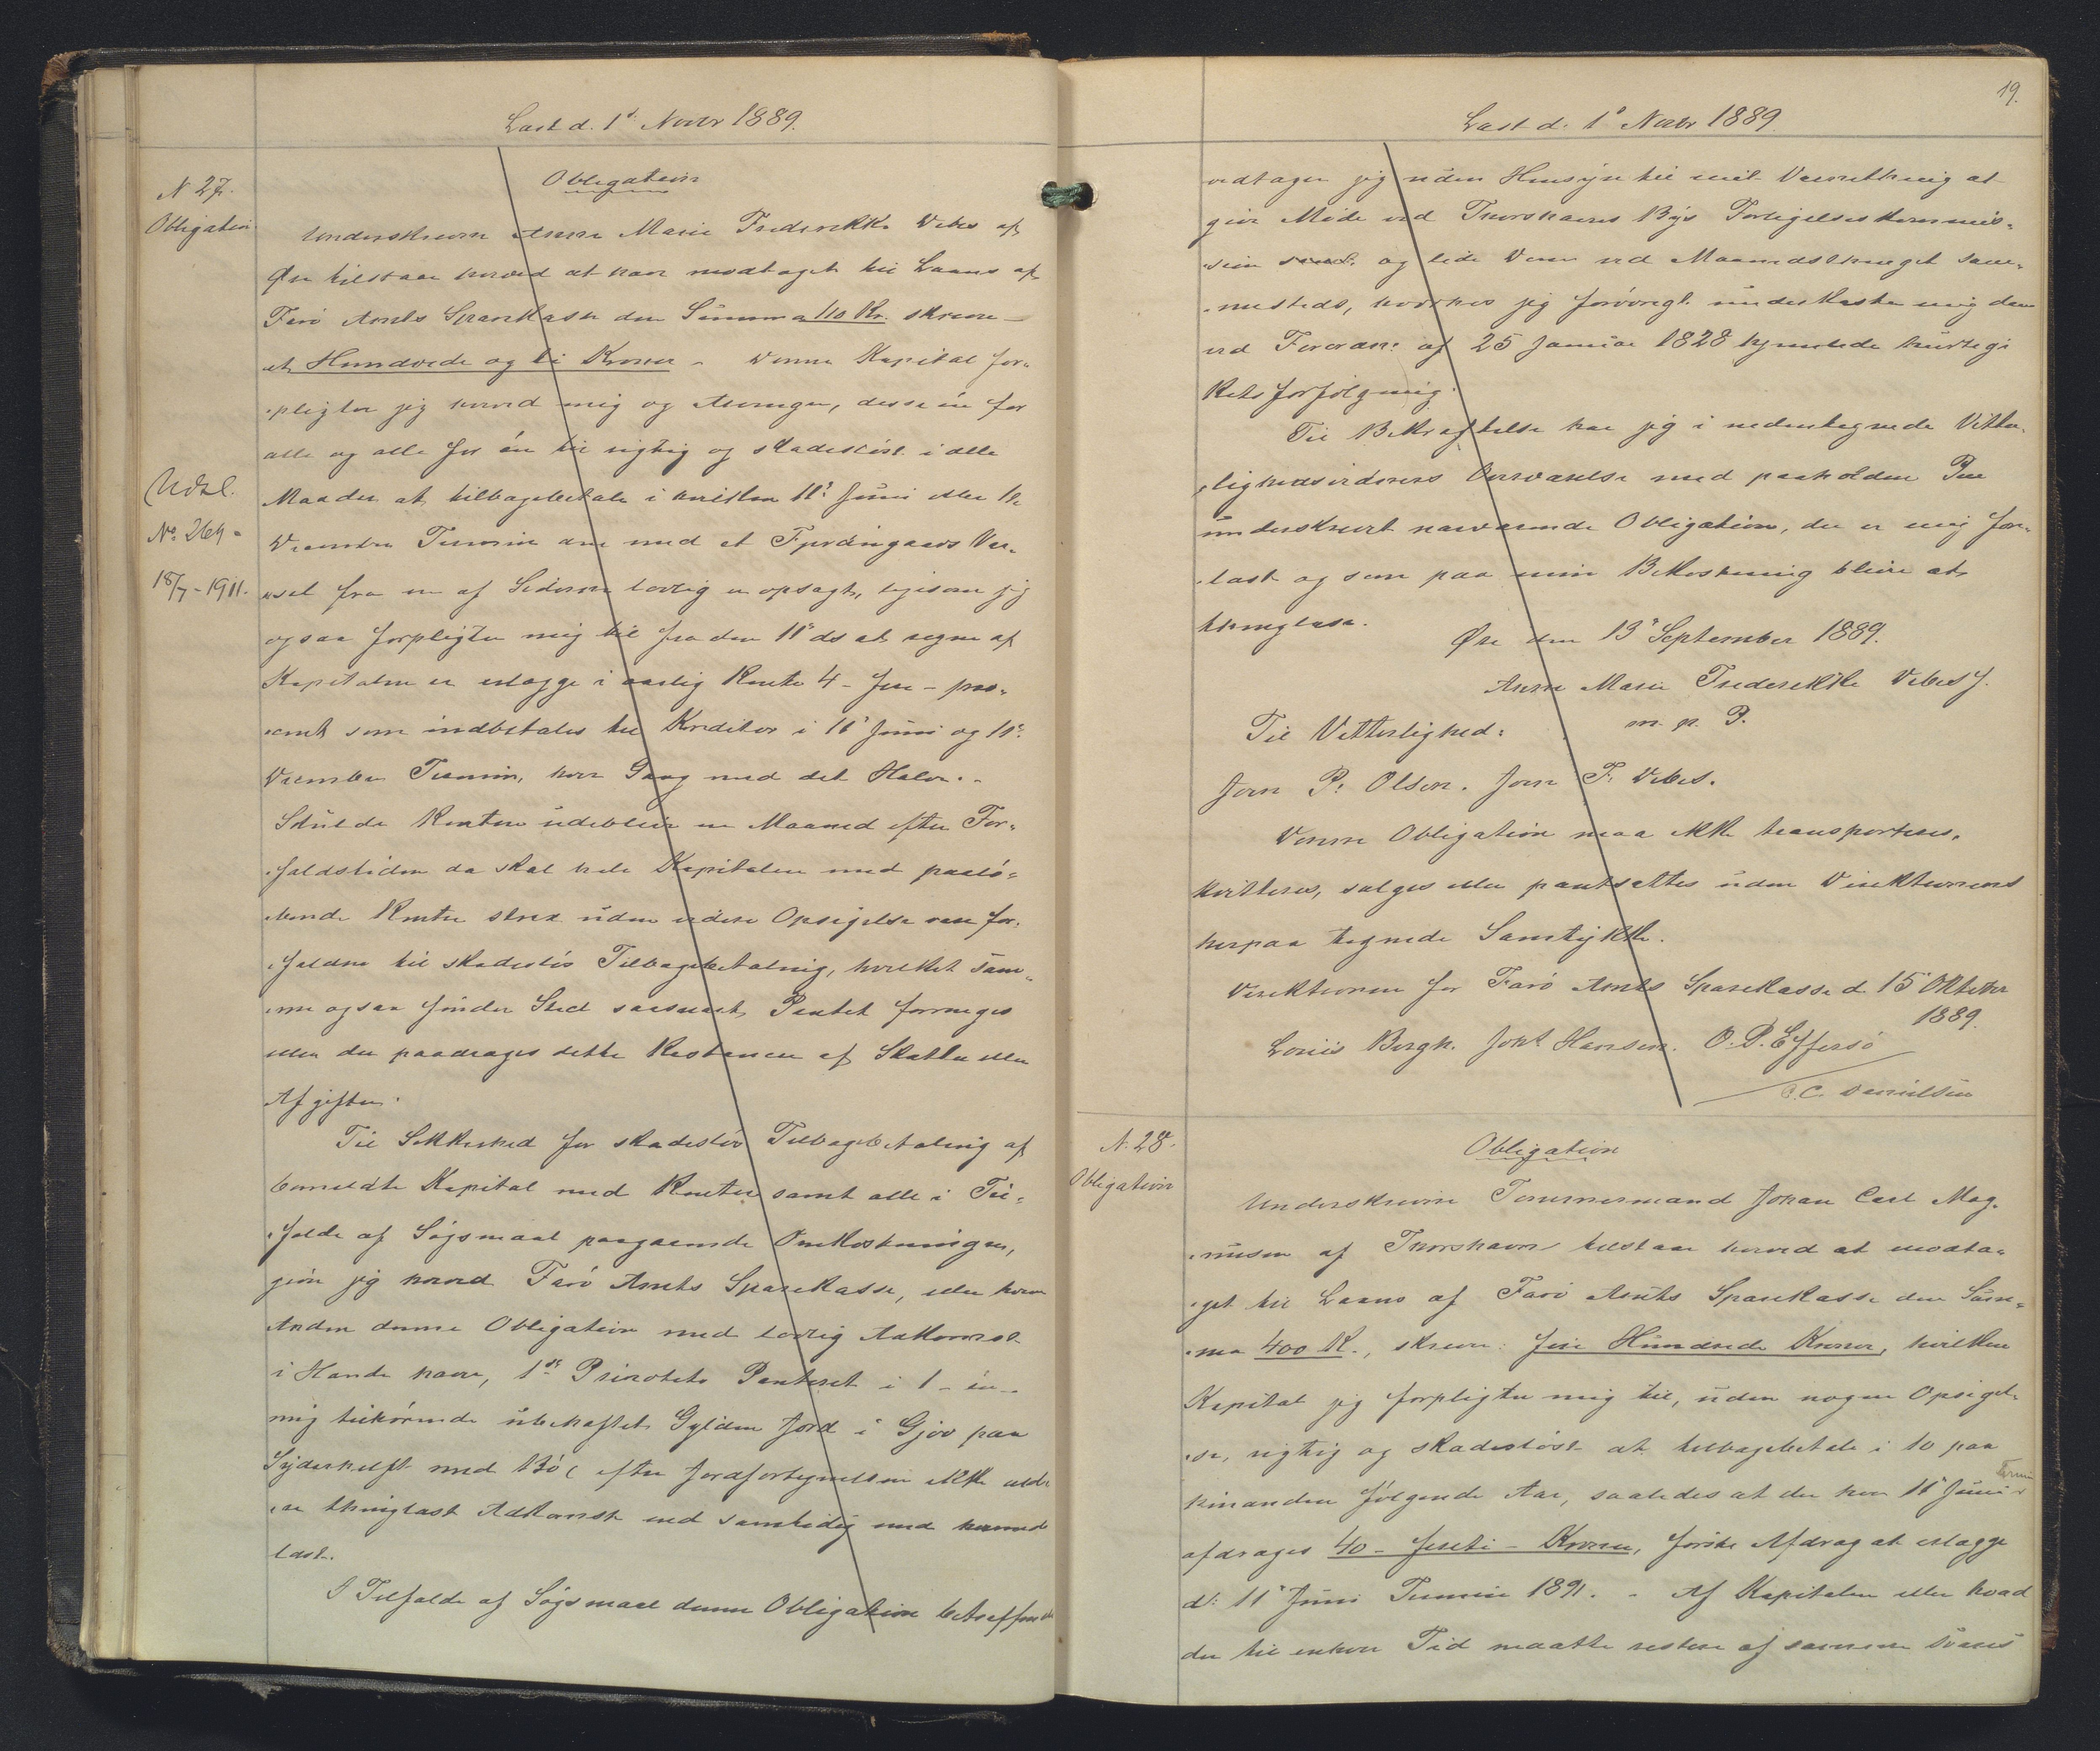 Læst d. 1ᵈ Novbr 1889.
N 27.
Obligation
Obligation
Underskrevne Anne Marie Frederikke Debes af
Øre tilstaar herved at have modtaget til Laans af
Færø Amts Sparekasse den Summa 110 Kr. skriver
et Hundrede og ti Kroner - Denne Kapital for-
pligter jeg herved mig og Arvinger, desse én for
alle og alle for én til rigtig og skadesløst i alle
Maader at tilbagebetale i hvilken 11ᵗ Juni eller 11te
Udsl.
No. 264
18/7-1911.
Decembr Termin den med et Fjerdingaars Var-
sel fra en af Siderne lovlig er opsagt, ligesom jeg
ogsaa forpligter mig til fra den 11' ds at regne af
Kapitalen er erlægge i aarlig Rente 4 - fire - pro-
cent som indbetales til Kreditor i 11' Juni og 11'
December Termin, hver Gang med det Halve. -
Skulde Renten udeblive en Maaned efter For-
faldstiden da skal hele Kapitalen med paalø-
bende Renter strax uden videre Opsigelse være for-
falden til skadesløs Tilbagebetaling, hvilket sam-
me ogsaa finder Sted saasnart Pantet forringes
eller der paadrages dette Restancer af Skatter eller
Afgifter.
Til Sikkerhed for skadesløs Tilbagebetaling af
bemeldte Kapital med Renter samt alle i Til-
fælde af Søgsmaal paagaaende Omkostninger,
giver jeg herved Færø Amts Sparekasse, eller hvem
Anden denne Obligation med lovlig Adkomst
i Hænde haver, 1ste Prioritets Panteret i 1 - én -
mig tilhørende ubehæftet Gylden Jord i Gjov paa
Syderhelft med Bø ( efter Jordfortegnelsen ikke
thinglæst Adkomst ved samtidig med herved
læst.
I Tilfælde af Søgsmaal denne Obligation betræffende
19.
Læst d. 1' Novbr 1889
vedtager jeg uden Hensyn til mit Værnething at
give Møde ved Thorshavns Bys Forligelseskommis-
sion samt og lide Dom ved Maanedsthinget sam-
mesteds, hvorhos jeg forøvrigt underkaster mig den
ved Forordn: af 25 Januar 1828 hjemlede hurtige
Retsforfølgning.
Til Bekræftelse har jeg i nedentegnede Vitter-
lighedsvidners Overværelse med paaholden Pen
underskrevet nærværende Obligation, der er mig fore-
læst og som paa min Bekostning bliver at
thinglæse.
Øre den 13' September 1889.
Anne Marie Frederikke Debes
m. p. P.
Til Vitterlighed:
Joen P. Olsen. Joen F. Debes.
Denne Obligation maa ikke transporteres,
kvitteres, sælges eller pantsættes uden Direktionens
herpaa tegnede Samtykke.
Direktionen for Færø Amts Sparekasse d. 15' Oktober
1889.
Louis Bergh. Joh: Hansen. O. P. Effersø
C. C. Danielsen
N. 28.
Obligation
Obligation
Underskrevne Tømmermand Johan Carl Mag-
nusen af Thorshavn tilstaar herved at modta-
get til Laans af Færø Amts Sparekasse den Sum-
ma 400 K., skriver: fire Hundrede Kroner, hvilken
Kapital jeg forpligter mig til, uden nogen Opsigel-
se, rigtig og skadesløst at tilbagebetale i 10 paa
hinanden følgende Aar, saaledes at der hver 11' Juni Termin
afdrages 40 - fireti - Kroner, første Afdrag at erlægge
d: 11' Juni Termin 1891. - Af Kapitalen eller hvad
der til enhver Tid maatte restere af samme svares